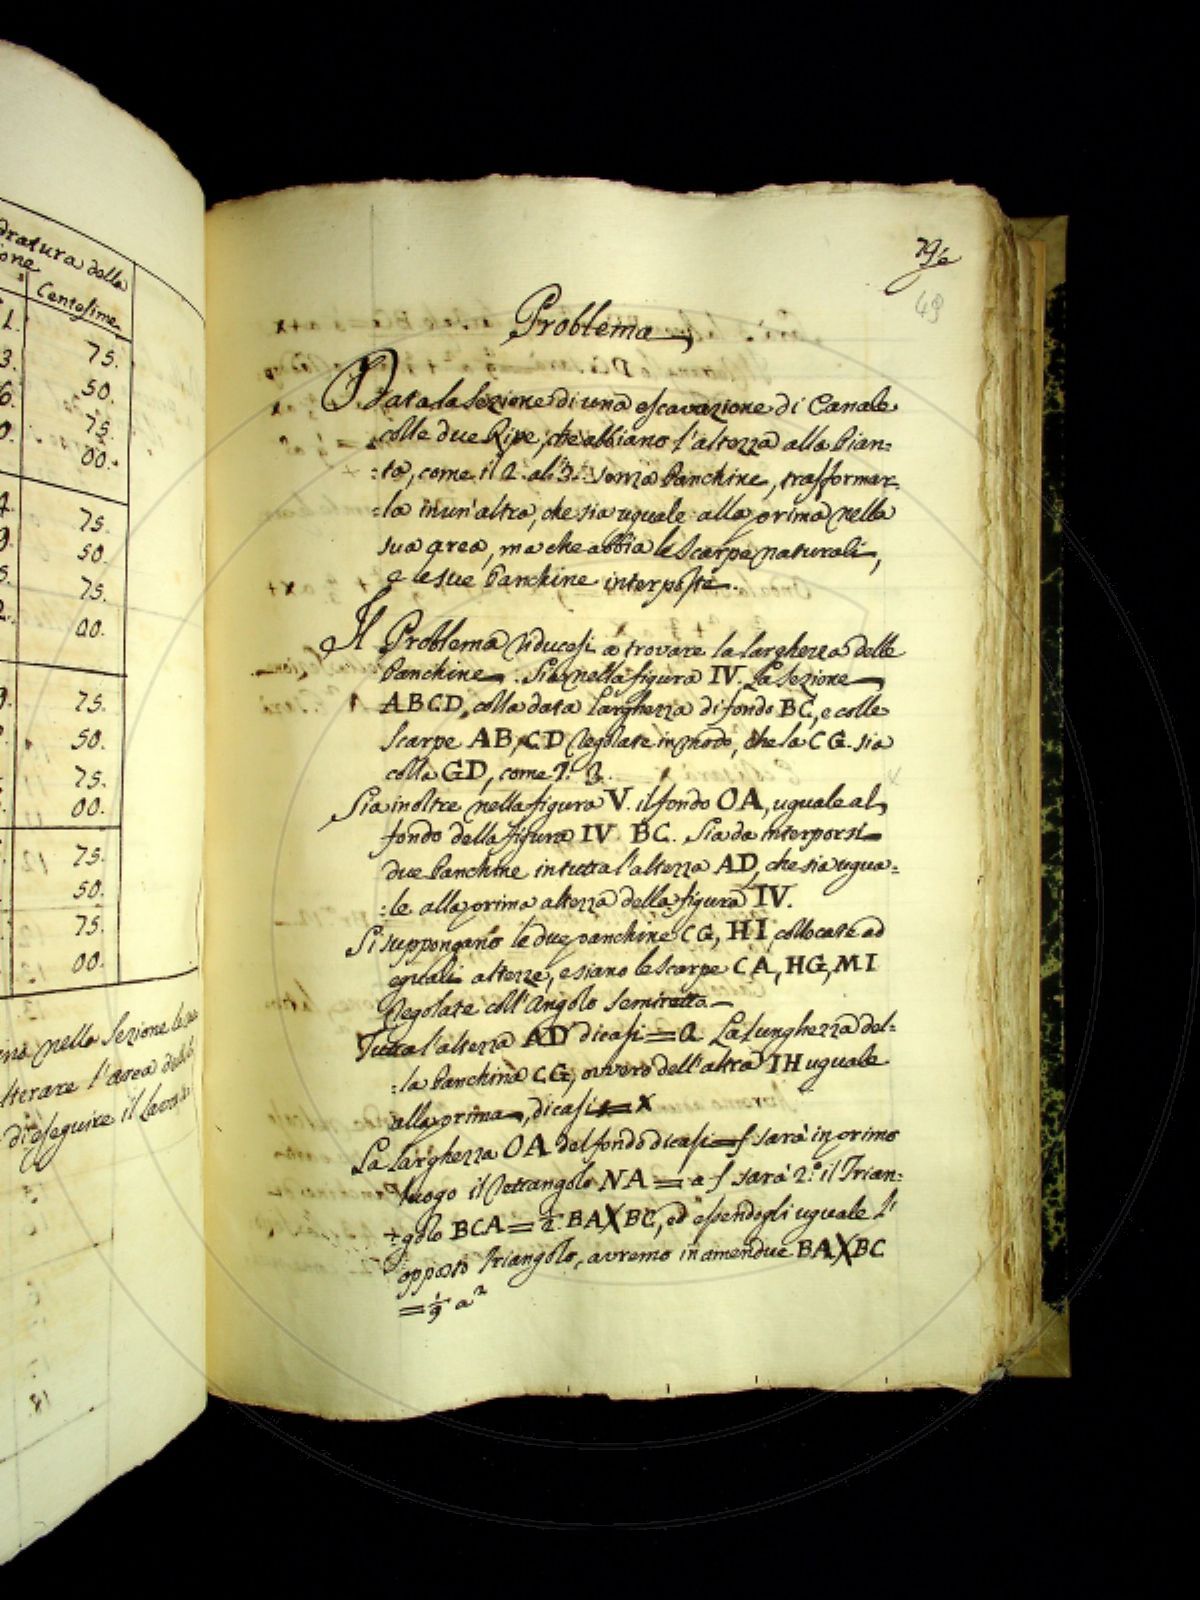 dratura della
ione
Centesime
1. 75.
3. 50.
6. 75.
0. 00.
4. 75.
9. 50.
5. 75.
2. 00.
9. 75.
50.
75.
00.
75.
50.
75.
00.
nella Sezione le
lterare l'area della
di eseguire il lavoro
49
Problema
Data la Sezione di una escavazione di Canale
colle due Ripe, che abbiano l'altezza alla Pian:
:ta, come il 2. al 3. senza Panchine, trasformar:
:la in un'altra, che sia uguale alla prima nella
sua area, ma che abbia le Scarpe naturali,
e le sue Panchine interposte.
Il Problema riducesi a trovare la larghezza delle
Panchine. Sia nella figura IV. La Sezione
ABCD, colla data larghezza di fondo BC, e colle
Scarpe AB, CD regolate in modo, che la CG. sia
colla GD, come 2. 3.
Sia inoltre nella figura V. il fondo OA, uguale al
fondo della figura IV BC. Sia da interporsi
due Panchine in tutta l'altezza AD, che sia ugua:
:le alla prima altezza della figura IV.
Si suppongano le due panchine CG, HI collocate ad
eguali altezze, e siano le Scarpe CA, HG, MI
regolate coll'Angolo Semiretto
Tutta l'altezza AD dicasi = a La lunghezza del:
:la Panchina CG, ovvero dell'altra IH uguale
alla prima, dicasi = x
La larghezza OA del fondo dicasi = f sarà in primo
luogo il Rettangolo NA = a f sarà 2.° il Trian:
:golo BCA = ½ BA X BC, ed essendogli uguale l'
opposto Triangolo, avremo in amendue BA X BC
= 1/9 a²